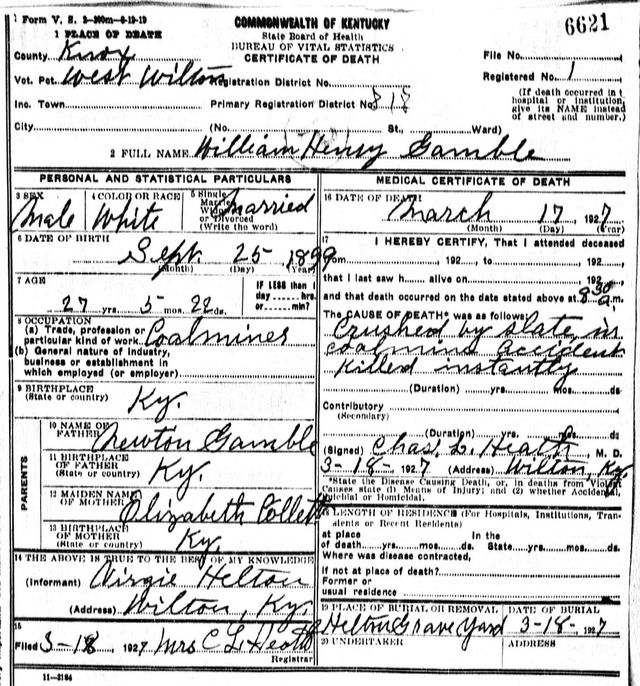 1 Form V. S. 2-300m-6-19-19
COMMONWEALTH OF KENTUCKY
State Board of Health
BUREAU OF VITAL STATISTICS
CERTIFICATE OF DEATH
6621
1 PLACE OF DEATH
County Knox
Vot. Pct. West Wilton
Inc. Town
City
Registration District No.
Primary Registration District No. 818
(No. St., Ward)
File No.
Registered No. 1
(If death occurred in t
hospital or institution,
give its NAME instead
of street and number.)
2 FULL NAME William Henry Gamble
PERSONAL AND STATISTICAL PARTICULARS
3 SEX
Male
4 COLOR OR RACE
White
5 Single
Married
Widowed
or Divorced
(Write the word)
Married
6 DATE OF BIRTH
Sept. 25 1899
(Month) (Day) (Year)
7 AGE
27 yrs. 5 mos. 22 ds.
IF LESS than 1
day hrs.
or min?
8 OCCUPATION
(a) Trade, profession or
particular kind of work Coalminer
(b) General nature of industry,
business or establishment in
which employed (or employer)
9 BIRTHPLACE
(State or country)
Ky.
PARENTS
10 NAME OF
FATHER
Newton Gamble
11 BIRTHPLACE
OF FATHER
(State or country)
Ky.
12 MAIDEN NAME
OF MOTHER
Elizabeth Collett
13 BIRTHPLACE
OF MOTHER
(State or country)
Ky.
14 THE ABOVE IS TRUE TO THE BEST OF MY KNOWLEDGE
(Informant) Virgie Helton
(Address) Wilton, Ky.
15
Filed 3-18, 1927 Mrs C L Heath
Registrar
11-3184
MEDICAL CERTIFICATE OF DEATH
16 DATE OF DEATH
March 17, 1927
(Month) (Day) (Year)
17
I HEREBY CERTIFY, That I attended deceased
from , 192 to , 192
that I last saw h alive on , 192
and that death occurred on the date stated above at 8 30 a m.
The CAUSE OF DEATH* was as follows:
Crushed by slate in
coalmine accident
Killed instantly
(Duration) yrs. mos. ds.
Contributory
(Secondary)
(Duration) yrs. mos. ds
(Signed) Chas. L. Heath, M. D.
3-18-1927 (Address) Wilton Ky.
*State the Disease Causing Death, or, in deaths from Violent
Causes state (1) Means of Injury; and (2) whether Accidental,
Suicidal or Homicidal.
18 LENGTH OF RESIDENCE (For Hospitals, Institutions, Tran-
sients or Recent Residents)
at place
of death yrs. mos. ds.
In the
State yrs. mos. ds.
Where was disease contracted,
if not at place of death?
Former or
usual residence
19 PLACE OF BURIAL OR REMOVAL
Helton Grave Yard
DATE OF BURIAL
3-18-1927
20 UNDERTAKER
ADDRESS